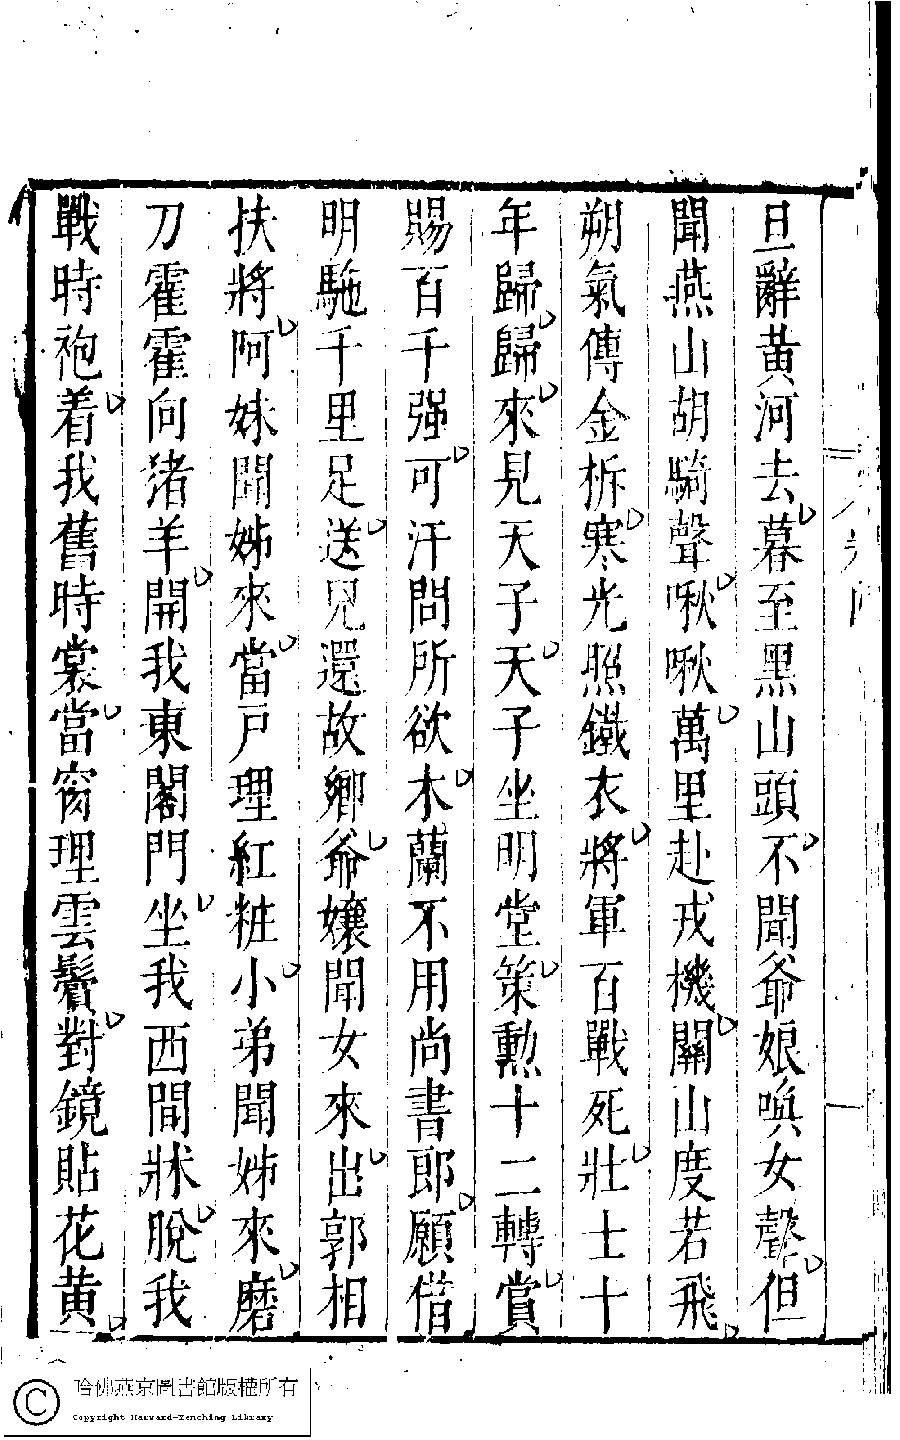 旦辭黃河去暮至黑山頭不聞爺娘喚女聲但
聞燕山胡騎聲啾啾萬里赴戎機關山度若飛
朔氣傳金柝寒光照鐵衣將軍百戰死壯士十
年歸歸來見天子天子坐明堂策勲十二轉賞
賜百千强可汗問所欲木蘭不用尚書郎願借
明駞千里足送兒還故鄉爺孃聞女來出郭相
扶將阿妹聞姊來當戶理紅粧小弟聞姊來磨
刀霍霍向猪羊開我東閣門坐我西間牀脫我
戰時袍着我舊時裳當窗理雲鬢對鏡貼花黃
哈佛燕京圖書館版權所有
Copyright Harvard-Yenching Library